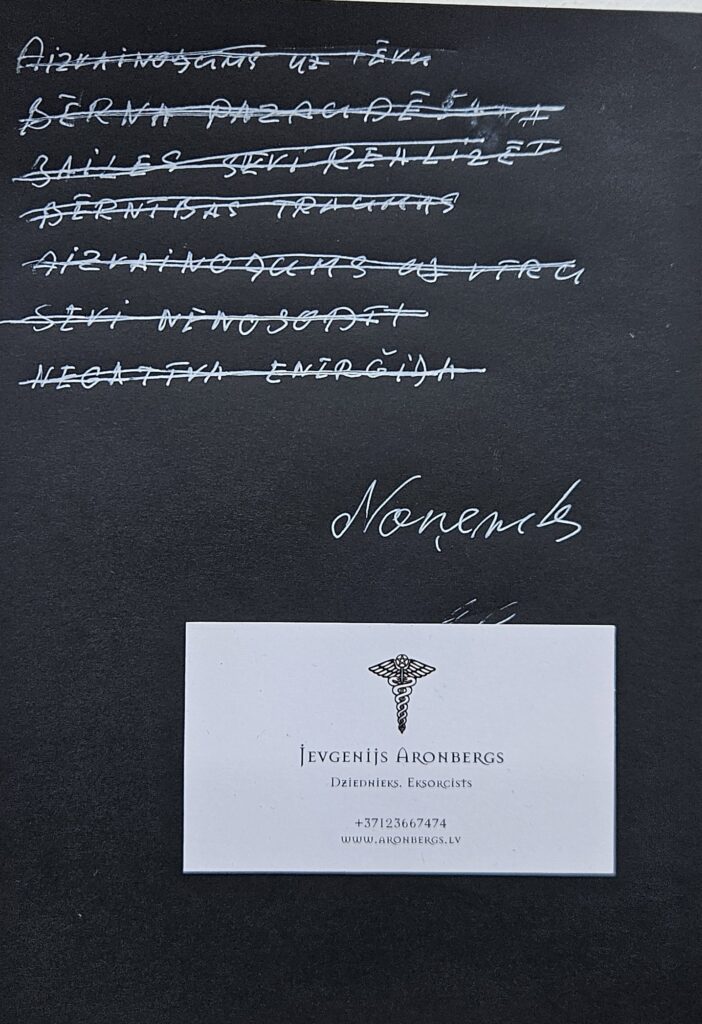 AIZVAINOJUMS UZ TĒVU
BĒRNA PAZAUDĒŠANA
BAILES SEVI REALIZĒT
BĒRNĪBAS TRAUMAS
AIZVAINOJUMS UZ VĪRU
SEVI NENOSODĪT
NEGATĪVA ENERĢIJA
Noņemts
Jevgenijs Aronbergs
Dziednieks. Eksorcists
+37123667474
www.aronbergs.lv